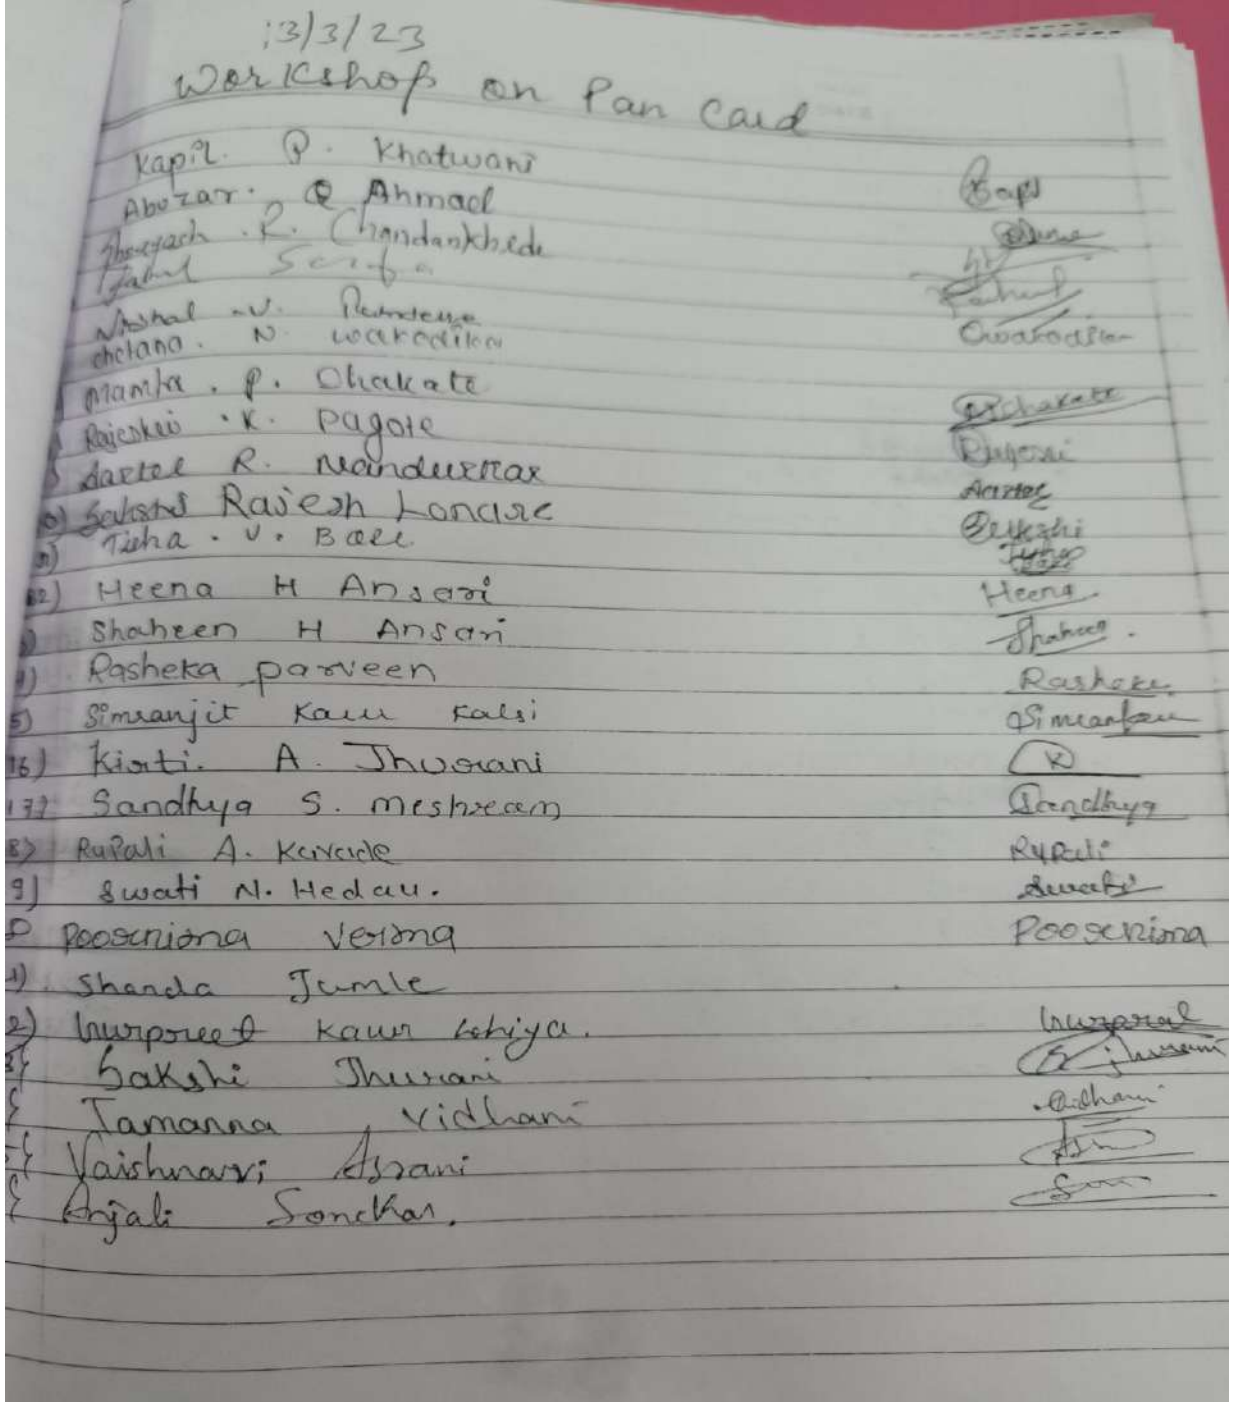 13/3/23
Workshop on Pan Card
Kapil. P. Khatwani
Abuzar. Q Ahmad
R. Chandankhede
N. Warodikar
Mamta. P. Dhakate Dhakate
K. Pagore
R. Nandurkar
10) Sakshi Rajesh Lonare Sakshi
Tisha. V. Bale Tisha
12) Heena H Ansari Heena
Shaheen H Ansari Shaheen.
Rasheka parveen Rasheka
5) Simranjit Kaur Kalsi Simrankaur
16) Kirti. A. Jhurani K
17) Sandhya S. meshram Sandhya
8) RuPali A. Kavade RuPali
9) Swati N. Hedau. Swati
Poornima Verma Poornima
1) Shanda Jumle
2) Gurpreet Kaur Lohiya. Gurpreet
Sakshi Jhurani S. Jhurani
Tamanna Vidhani Vidhani
Vaishnavi Asrani
Anjali Sonekar.